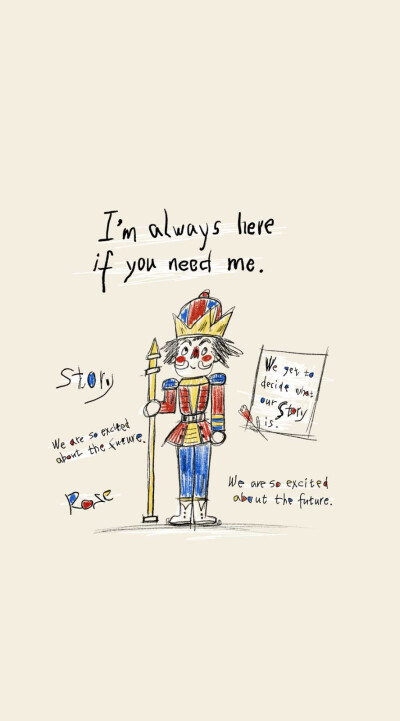 I'm always here
if you need me.
Story
We are so excited
about the future.
Rose
We get to
decide what
our Story
is.
We are so excited
about the future.